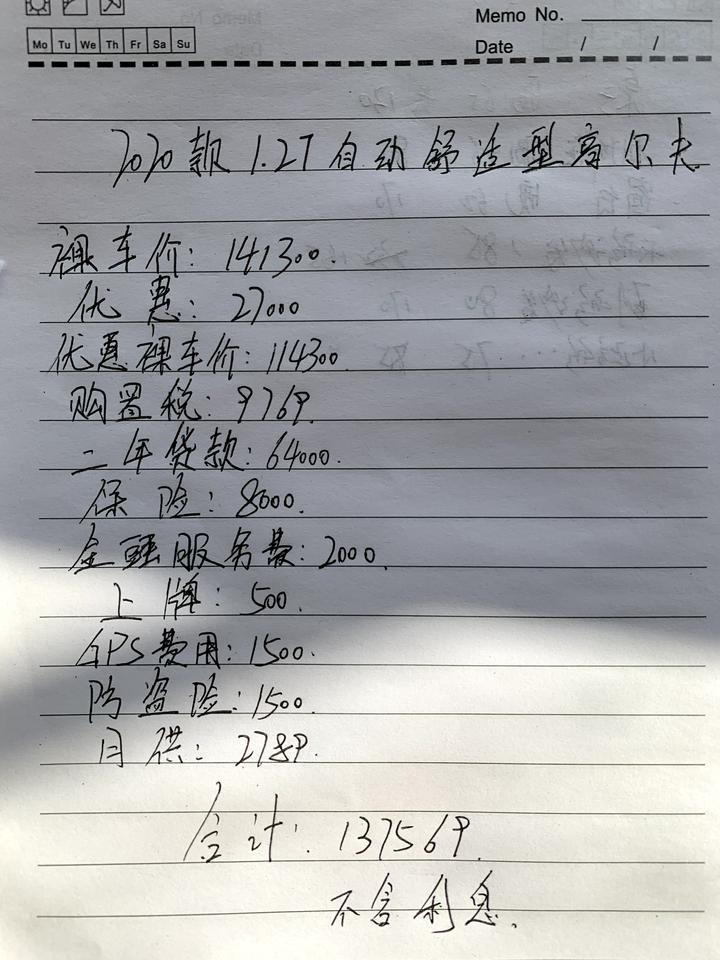 Memo No.
Mo Tu We Th Fr Sa Su
Date / /
2020款1.2T自动舒适型高尔夫
裸车价: 141300.
优惠: 27000
优惠裸车价: 114300.
购置税: 9769.
二年贷款: 64000.
保险: 8000.
金融服务费: 2000.
上牌: 500.
GPS费用: 1500.
防盗险: 1500.
月供: 2789.
合计: 137569.
不含利息.